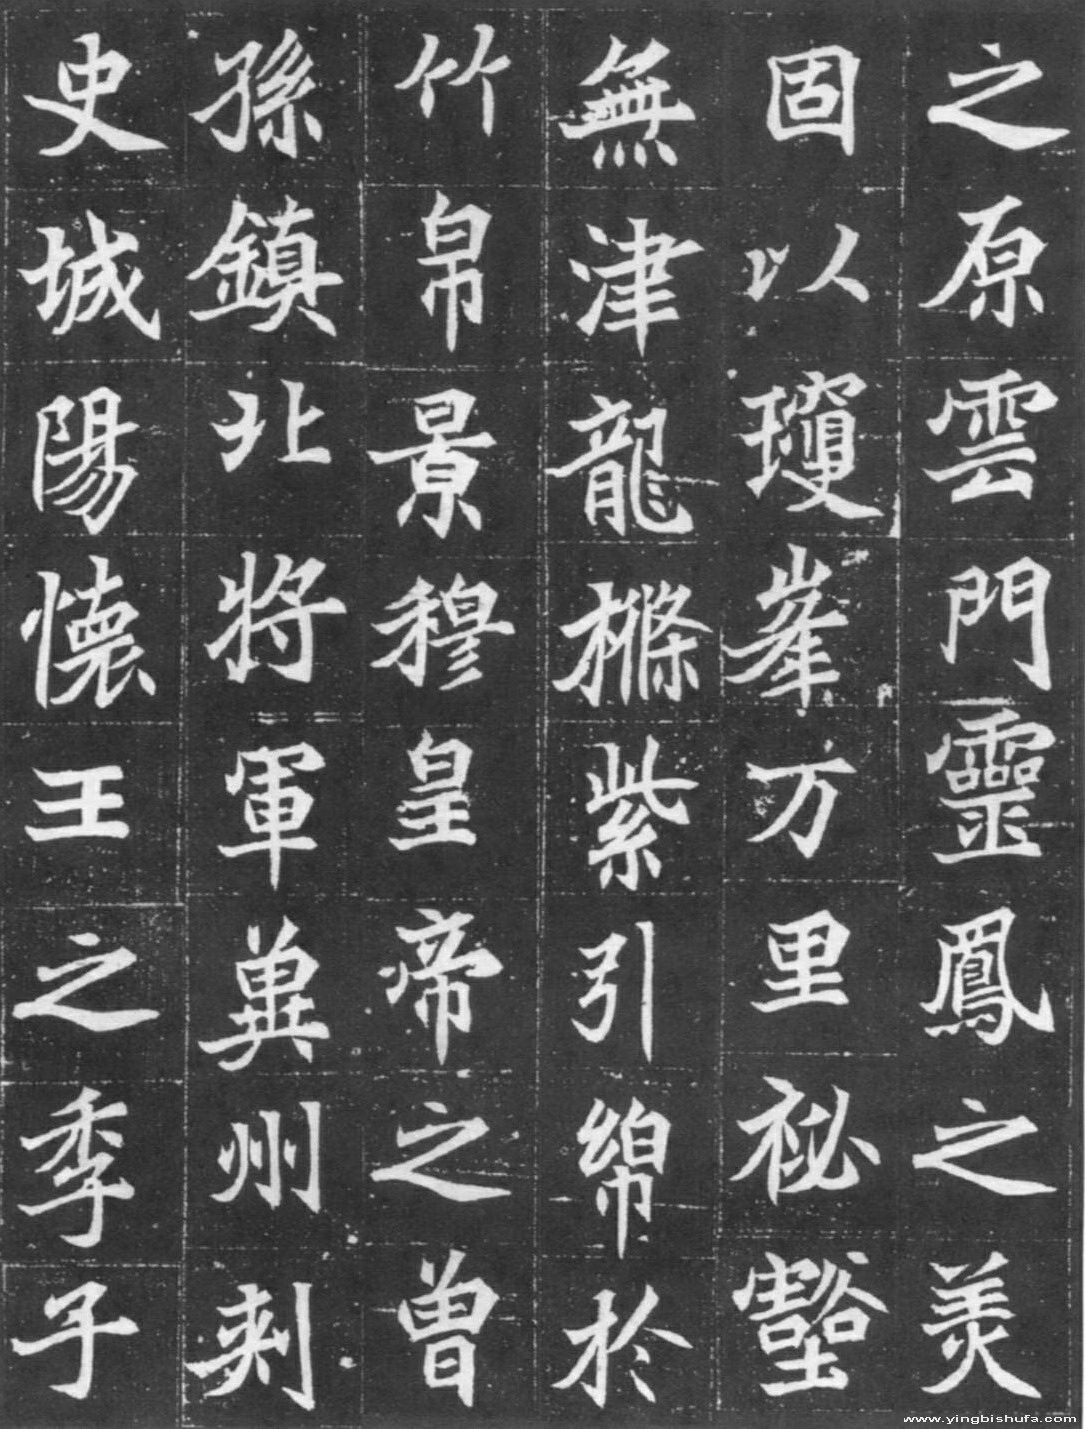 之原雲門靈鳳之美
固以瓊峯万里祕壑
無津龍樤紫引綿於
竹帛景穆皇帝之曾
孫鎮北將軍冀州刺
史城陽懷王之季子
www.yingbishufa.com